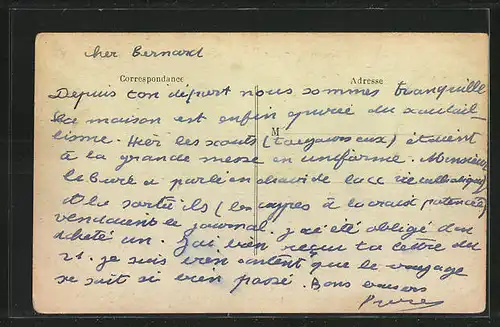 cher Bernard
Correspondance
Adresse
Depuis ton départ nous sommes tranquille
La maison est enfin du
M
lisme. Hier les scouts (toujours eux) étaient
à la grande messe en uniforme. Monsieur
le Curé a parlé en
A la sortie ils (les à la croix potencée)
vendaient le journal. J'ai été obligé d'en
acheté un. J'ai bien reçu ta lettre du
21. je suis bien content que le voyage
se soit si bien passé. Bons baisers
Pierre